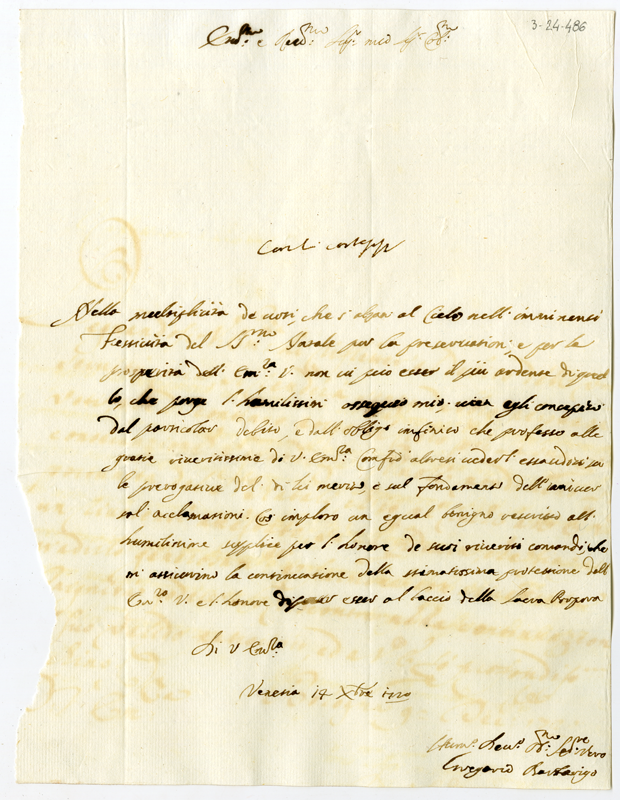 3-24-486
Em.mo e Rev.mo Sig.r mio Sig.r Ob.mo
Nella moltiplicità de cuori, che s'alzan al Cielo nell'imminenti
Festività del S.mo Natale per la preservation e per la
prosperità dell'Em.za V. non vi può esser il più ardente di quel
lo, che porge l'humilissimo ossequio mio, vien egli concepito
dal particolar debito, e dall'obligo infinito che professo alle
gratie riveritissime di V. Em.za Confido altresì veder l'essaudito su
le prerogative del di lei merito, e sul fondamento dell'univer
sal'acclamationi. Io imploro un egual benigno rescritto all'
humilissime supplice per l'honore de suoi riveriti comandi, che
mi assicurino la continuatione della stimatissima protettione dell'
Em.za V. e l'honore di esser al baccio della Sacra Porpora
Di V Em.za
Venetia 14 Xbre 1720
Hum.o Dev.o Ob.mo Se.re Vero
Gregorio Barbarigo